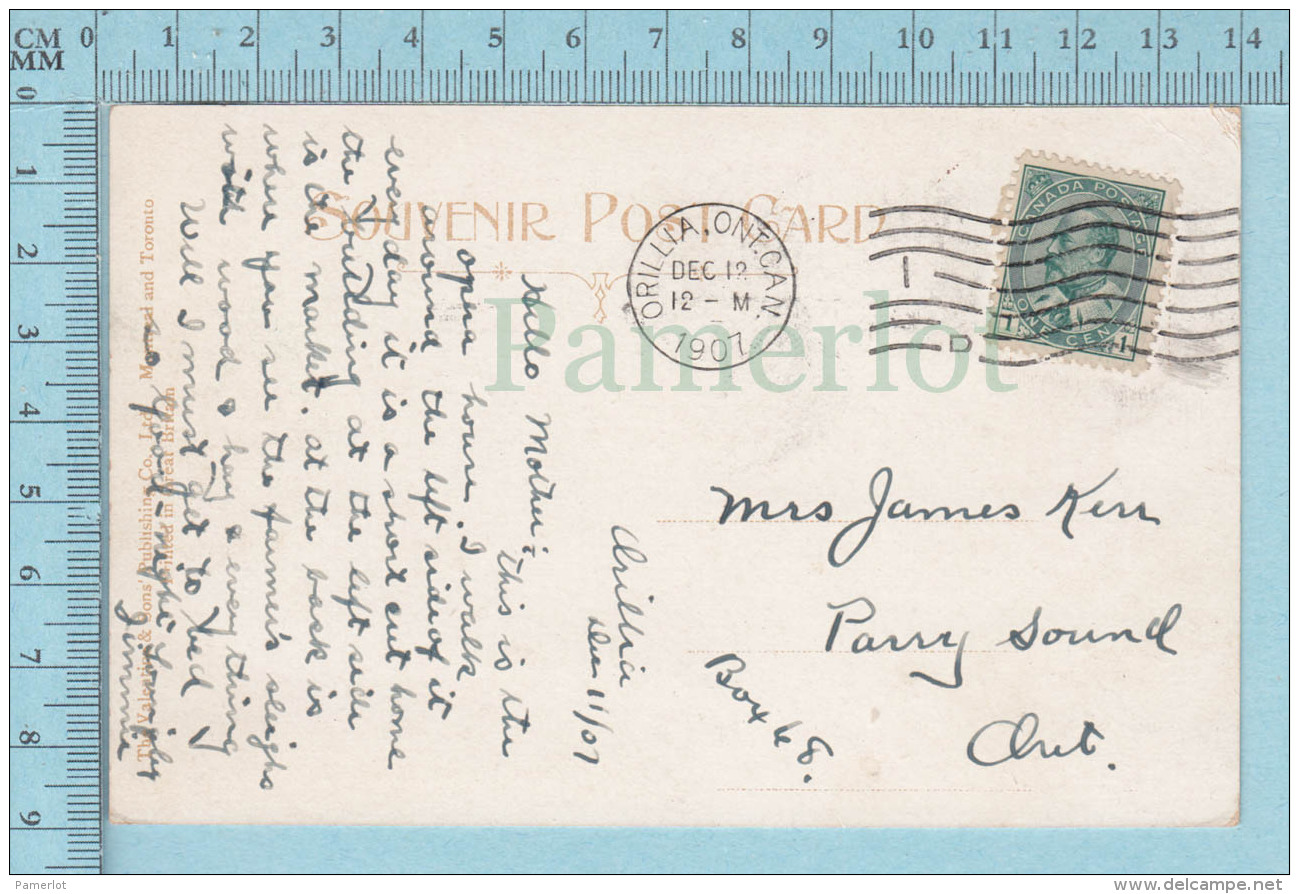 CM 0 1 2 3 4 5 6 7 8 9 10 11 12 13 14
MM
0 1 2 3 4 5 6 7 8 9
SOUVENIR POST CARD
ORILLIA, ONT. CAN.
DEC 12
12 - M
1907
1
D
CANADA POSTAGE
ONE CENT
1 1
Pamerlot
Mrs James Kerr
Parry Sound
Box 68.
Ont.
Orillia
Dec 11/07
Hello Mother;
This is the
opera house I walk
around the left side of it
every day it is a short cut home
the building at the left side
is the market. at the back is
where you see the farmer's sleighs
with wood & hay & every thing
Well I must get to bed
so good-night
Jimmie
The Valentine & Sons' Publishing Co., Ltd., Montreal and Toronto
Printed in Great Britain
Pamerlot
www.delcampe.net